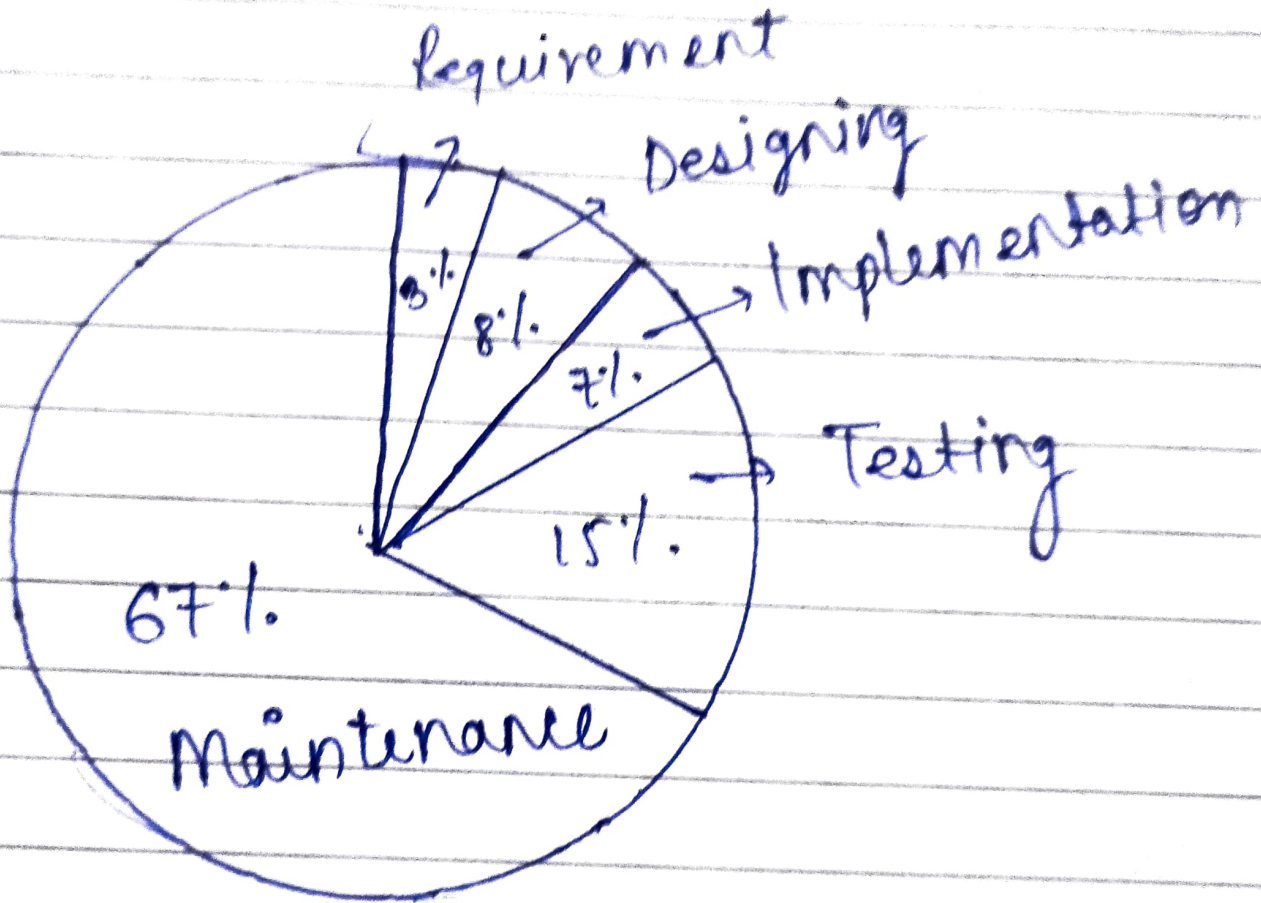 Requirement
Designing
Implementation
3%
8%
7%
Testing
15%
67%
Maintenance